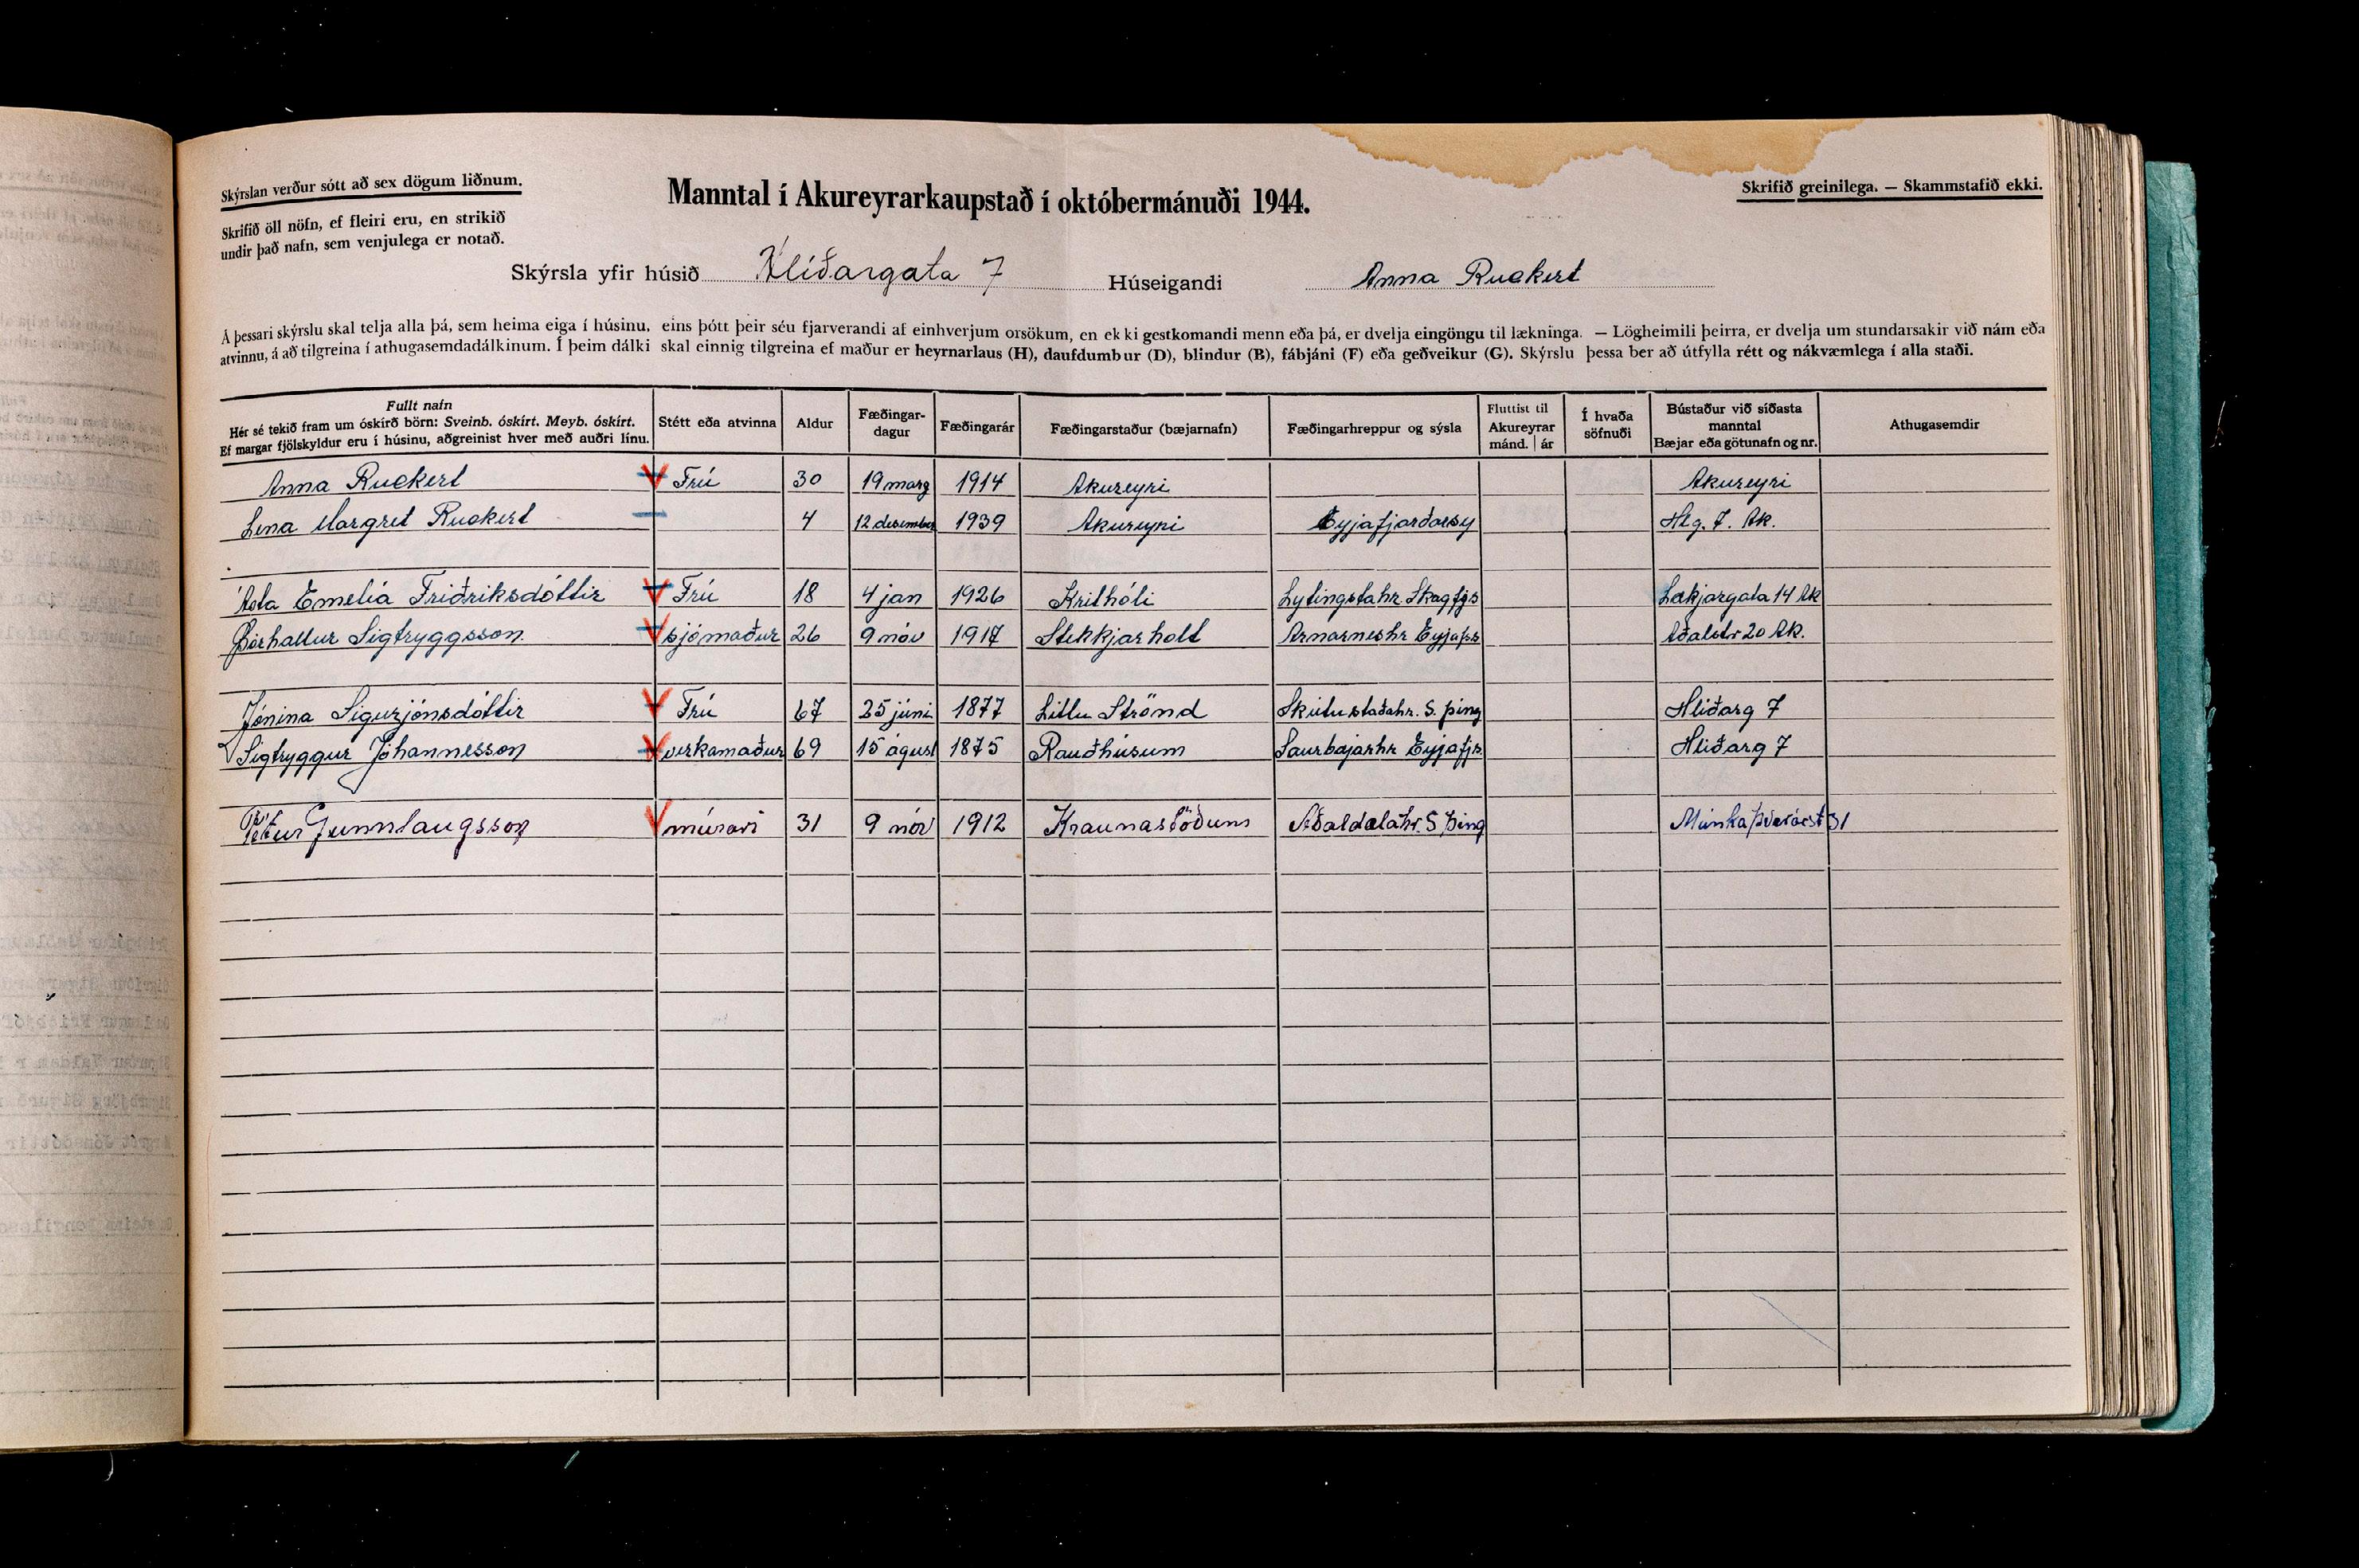 Skýrslan verður sótt að sex dögum liðnum.
Skrifið öll nöfn, ef fleiri eru, en strikið
undir það nafn, sem venjulega er notað.
Manntal í Akureyrarkaupstað í októbermánuði 1944.
Skrifið greinilega. — Skammstafið ekki.
Skýrsla yfir húsið Hlíðargata 7 Húseigandi Anna Ruckert
Á þessari skýrslu skal telja alla þá, sem heima eiga í húsinu, eins þótt þeir séu fjarverandi af einhverjum orsökum, en ekki gestkomandi menn eða þá, er dvelja eingöngu til lækninga. — Lögheimili þeirra, er dvelja um stundarsakir við nám eða
atvinnu, á að tilgreina í athugasemdadálkinum. Í þeim dálki skal einnig tilgreina ef maður er heyrnarlaus (H), daufdumbur (D), blindur (B), fábjáni (F) eða geðveikur (G). Skýrslu þessa ber að útfylla rétt og nákvæmlega í alla staði.
Fullt nafn
Hér sé tekið fram um óskírð börn: Sveinb. óskírt. Meyb. óskírt.
Ef margar fjölskyldur eru í húsinu, aðgreinist hver með auðri línu.
Stétt eða atvinna
Aldur
Fæðingar-
dagur
Fæðingarár
Fæðingarstaður (bæjarnafn)
Fæðingarhreppur og sýsla
Fluttist til
Akureyrar
mánd. | ár
Í hvaða
söfnuði
Bústaður við síðasta
manntal
Bæjar eða götunafn og nr.
Athugasemdir
Anna Ruckert Frú 30 19 marz 1914 Akureyri Akureyri
Lena Margret Ruckert 4 12 desember 1939 Akureyri Eyjafjarðarsy Hlg. 7. Ak.
Ásta Emelía Friðriksdóttir Frú 18 4 jan 1926 Krithóli Lytingstahr. Skagfjs Lækjargata 14 Ak
Þórhallur Sigtryggsson sjómaður 26 9 nóv 1917 Stekkjarholt Arnarneshr Eyjafjs Aðalstr 20 Ak.
Jónina Sigurjónsdóttir Frú 67 25 júni 1877 Litlu Strönd Skútustaðahr. S. þing Hliðarg 7
Sigtryggur Jóhannesson verkamaður 69 15 ágúst 1875 Rauðhúsum Saurbæjarhr Eyjafjs. Hliðarg 7
Pétur Gunnlaugsson múrari 31 9 nóv 1912 Kraunastöðum Aðaldælahr. S þing Munkaþverárst 31